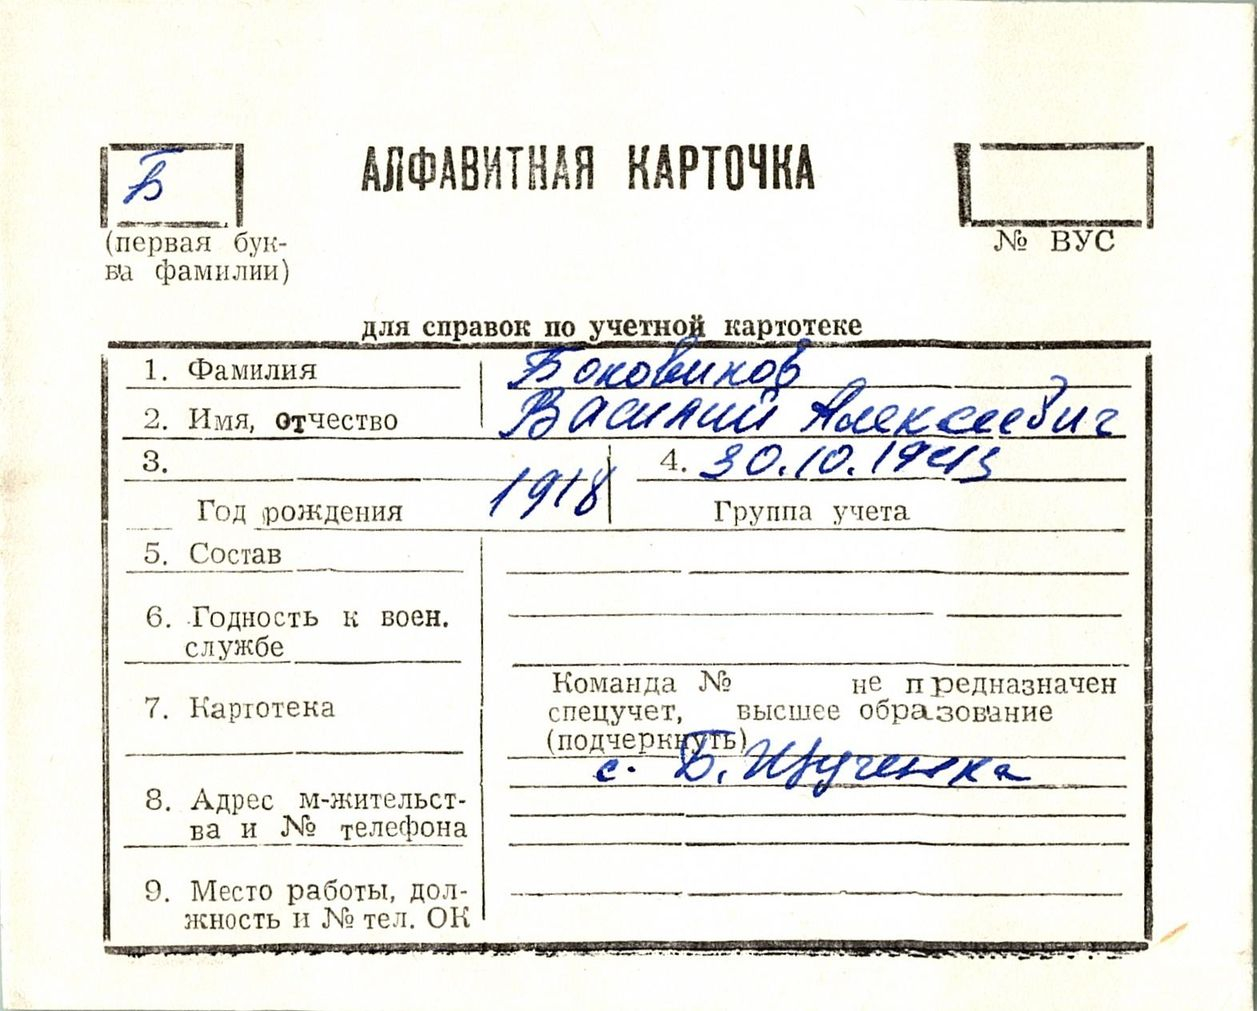 Б
АЛФАВИТНАЯ КАРТОЧКА
(первая бук-
ва фамилии)
№ ВУС
для справок по учетной картотеке
1. Фамилия Боковиков
2. Имя, отчество Василий Алексеевич
3. 1918 4. 30.10.1943
Год рождения Группа учета
5. Состав
6. Годность к воен.
службе
7. Картотека
Команда № не предназначен
спецучет, высшее образование
(подчеркнуть)
с. Б. Щученка
8. Адрес м-жительст-
ва и № телефона
9. Место работы, дол-
жность и № тел. ОК